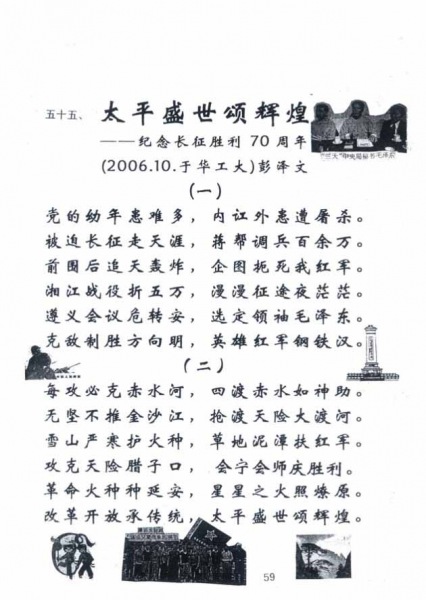 五十五、太平盛世颂辉煌
——纪念长征胜利70周年
(2006.10.于华工大)彭泽文
(一)
党的幼年患难多，内讧外患遭屠杀。
被迫长征走天涯，蒋帮调兵百余万。
前围后追天轰炸，企图扼死我红军。
湘江战役折五万，漫漫征途夜茫茫。
遵义会议危转安，选定领袖毛泽东。
克敌制胜方向明，英雄红军钢铁汉。
(二)
每攻必克赤水河，四渡赤水如神助。
无坚不推金沙江，抢渡天险大渡河。
雪山严寒护火种，草地泥潭扶红军。
攻克天险腊子口，会宁会师庆胜利。
革命火种种延安，星星之火照燎原。
改革开放承传统，太平盛世颂辉煌。
59